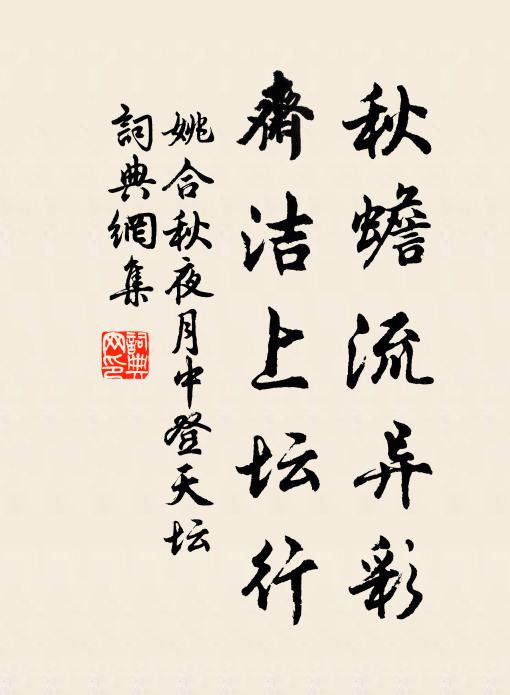 秋蟾流异彩
齋洁上坛行
姚合秋夜月中登天坛
詞典網集
詞典网印